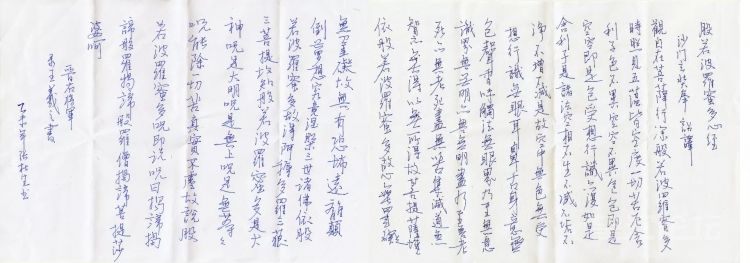 般若波羅蜜多心經
沙門玄奘奉 詔譯
觀自在菩薩行深般若波羅蜜多
時照見五蘊皆空度一切苦厄舍
利子色不異空空不異色色即是
空空即是色受想行識亦復如是
舍利子是諸法空相不生不滅不垢不
淨不增不減是故空中無色無受
想行識無眼耳鼻舌身意無
色聲香味觸法無眼界乃至無意
識界無無明亦無無明盡乃至無老
死亦無老死盡無苦集滅道無
智亦無得以無所得故菩提薩埵
依般若波羅蜜多故心無罣礙
無罣礙故無有恐怖遠離顛
倒夢想究竟涅槃三世諸佛依般
若波羅蜜多故得阿耨多羅三藐
三菩提故知般若波羅蜜多是大
神呪是大明呪是無上呪是無等々
呪能除一切苦真實不虛故說般
若波羅蜜多呪即說呪曰揭諦揭
諦般羅揭諦般羅僧揭諦菩提莎
婆呵
晉右將軍
王羲之書